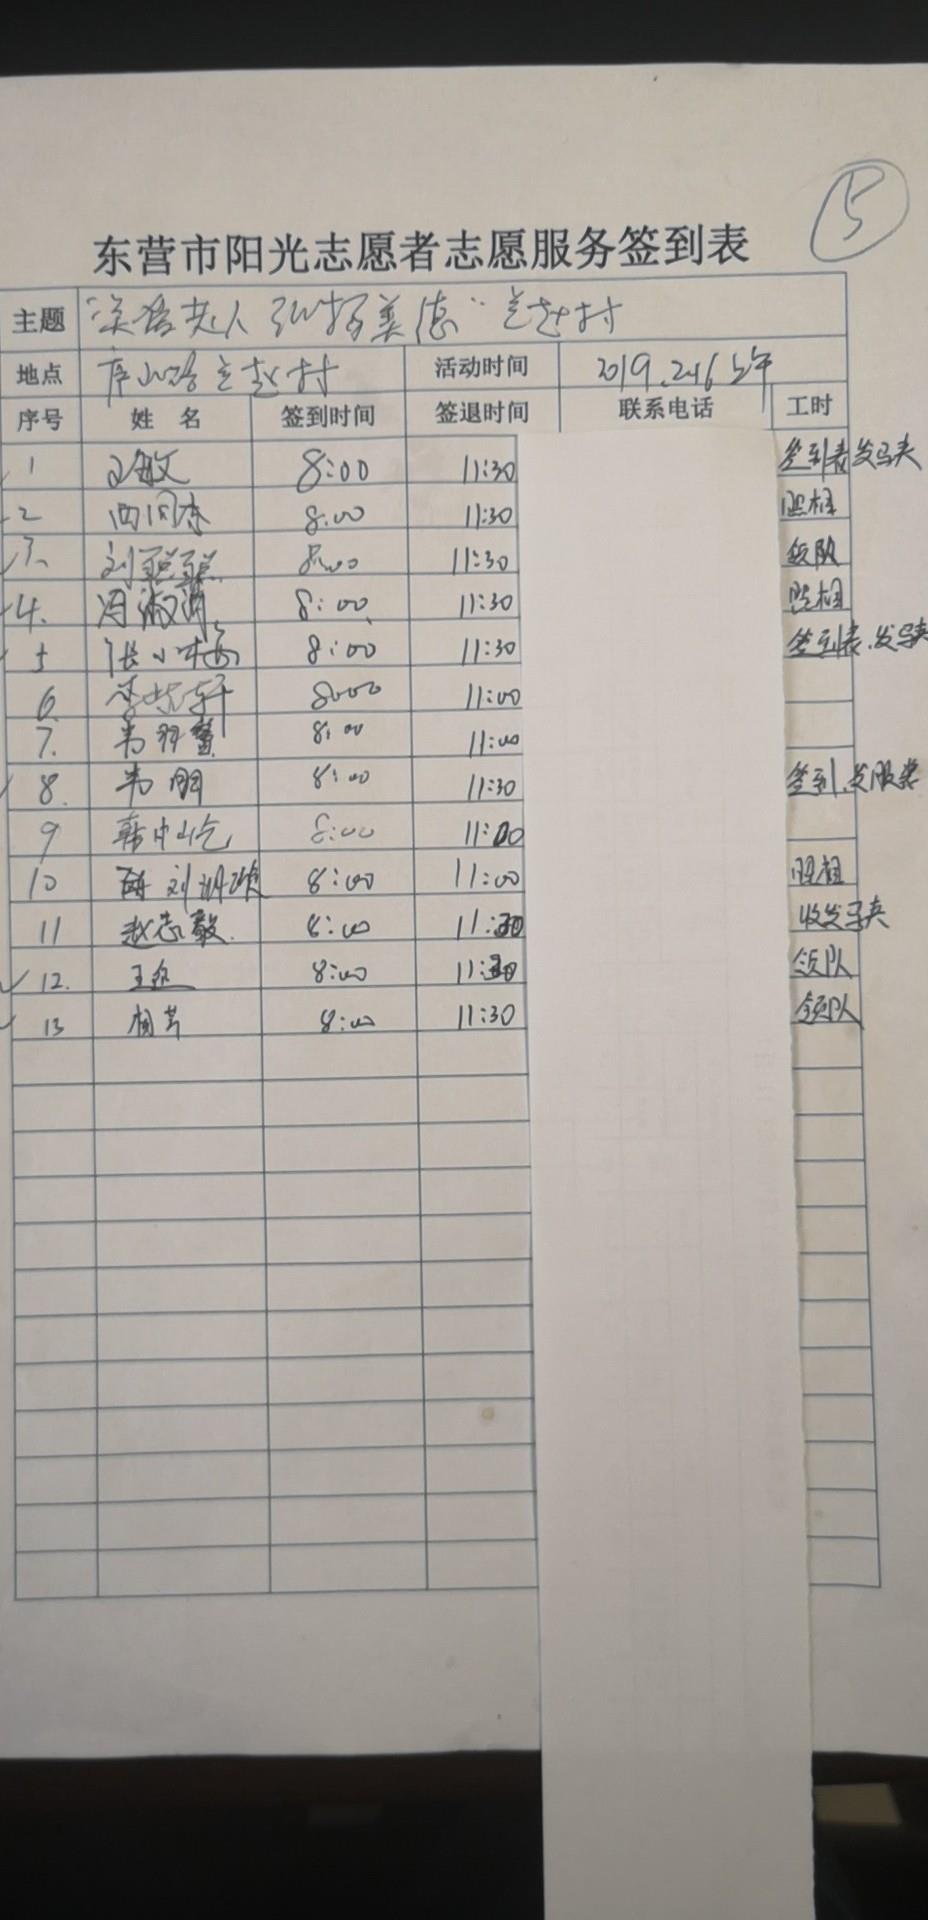 5
东营市阳光志愿者志愿服务签到表
主题 美德"
地点 庐山路 赵村 活动时间 2019.2.16上午
序号 姓名 签到时间 签退时间 联系电话 工时
1 敏 8:00 11:30 签到表发马夹
2 8:00 11:30 照相
3. 刘聪聪 8:00 11:30 领队
4. 冯淑 8:00 11:30 照相
5 张小梅 8:00 11:30 签到表.发马夹
6. 8:00 11:00
7. 韦 8:00 11:00
8. 韦朋 8:00 11:30 签到.发服装
9 韩 8:00 11:00
10 刘 8:00 11:00 照相
11 赵志毅. 8:00 11:30 收发马夹
12. 王 8:00 11:30 领队
13 8:00 11:30 领队